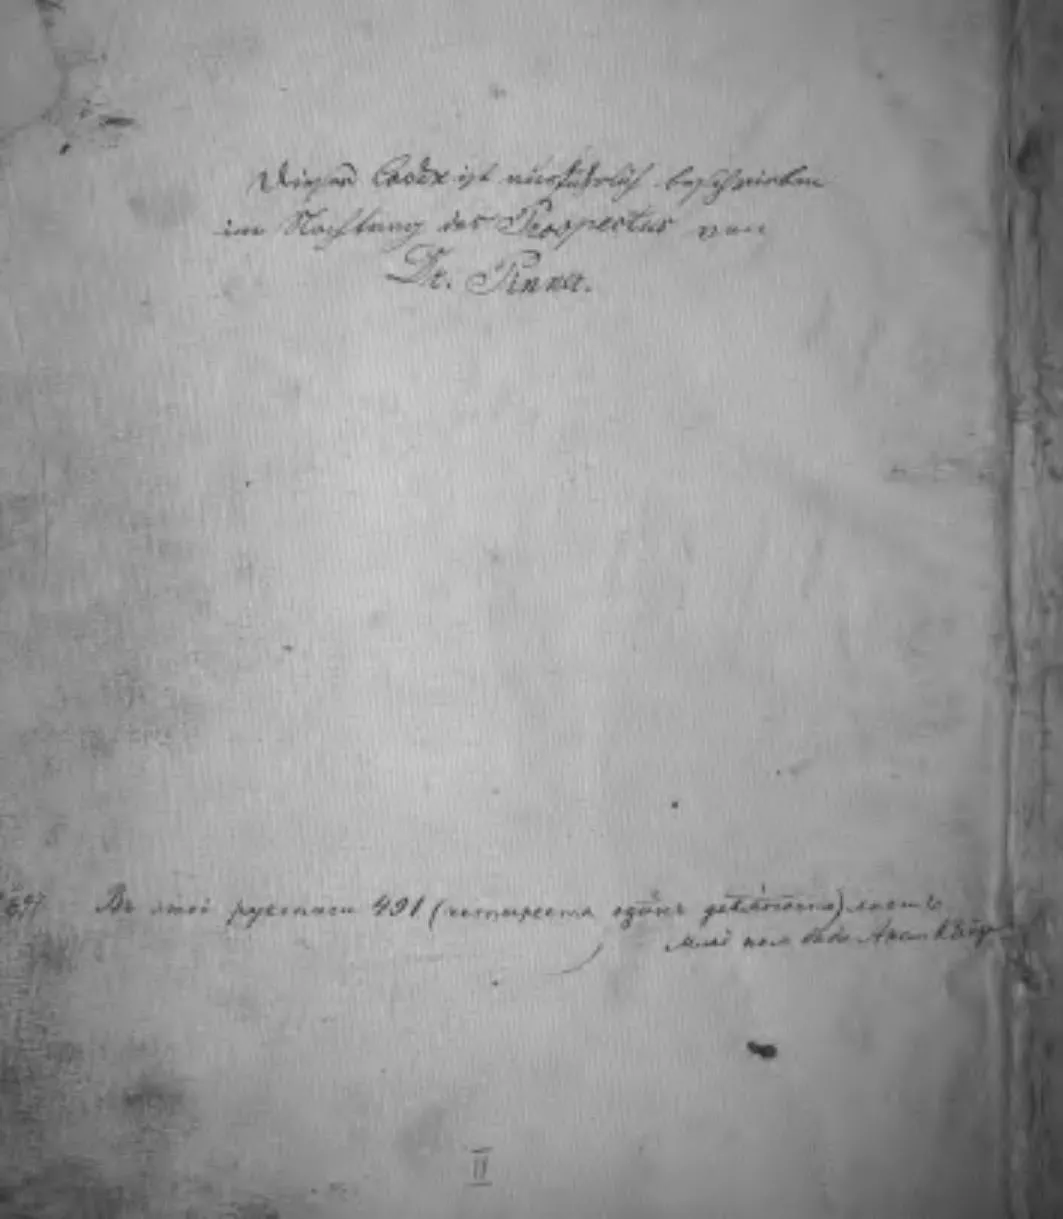 Dieser Codex ist ausführlich beschrieben
im Nachtrag des Prospectus von
Dr. Pinner.
Въ этой рукописи 491 (четыреста одинъ девяносто) листъ
II